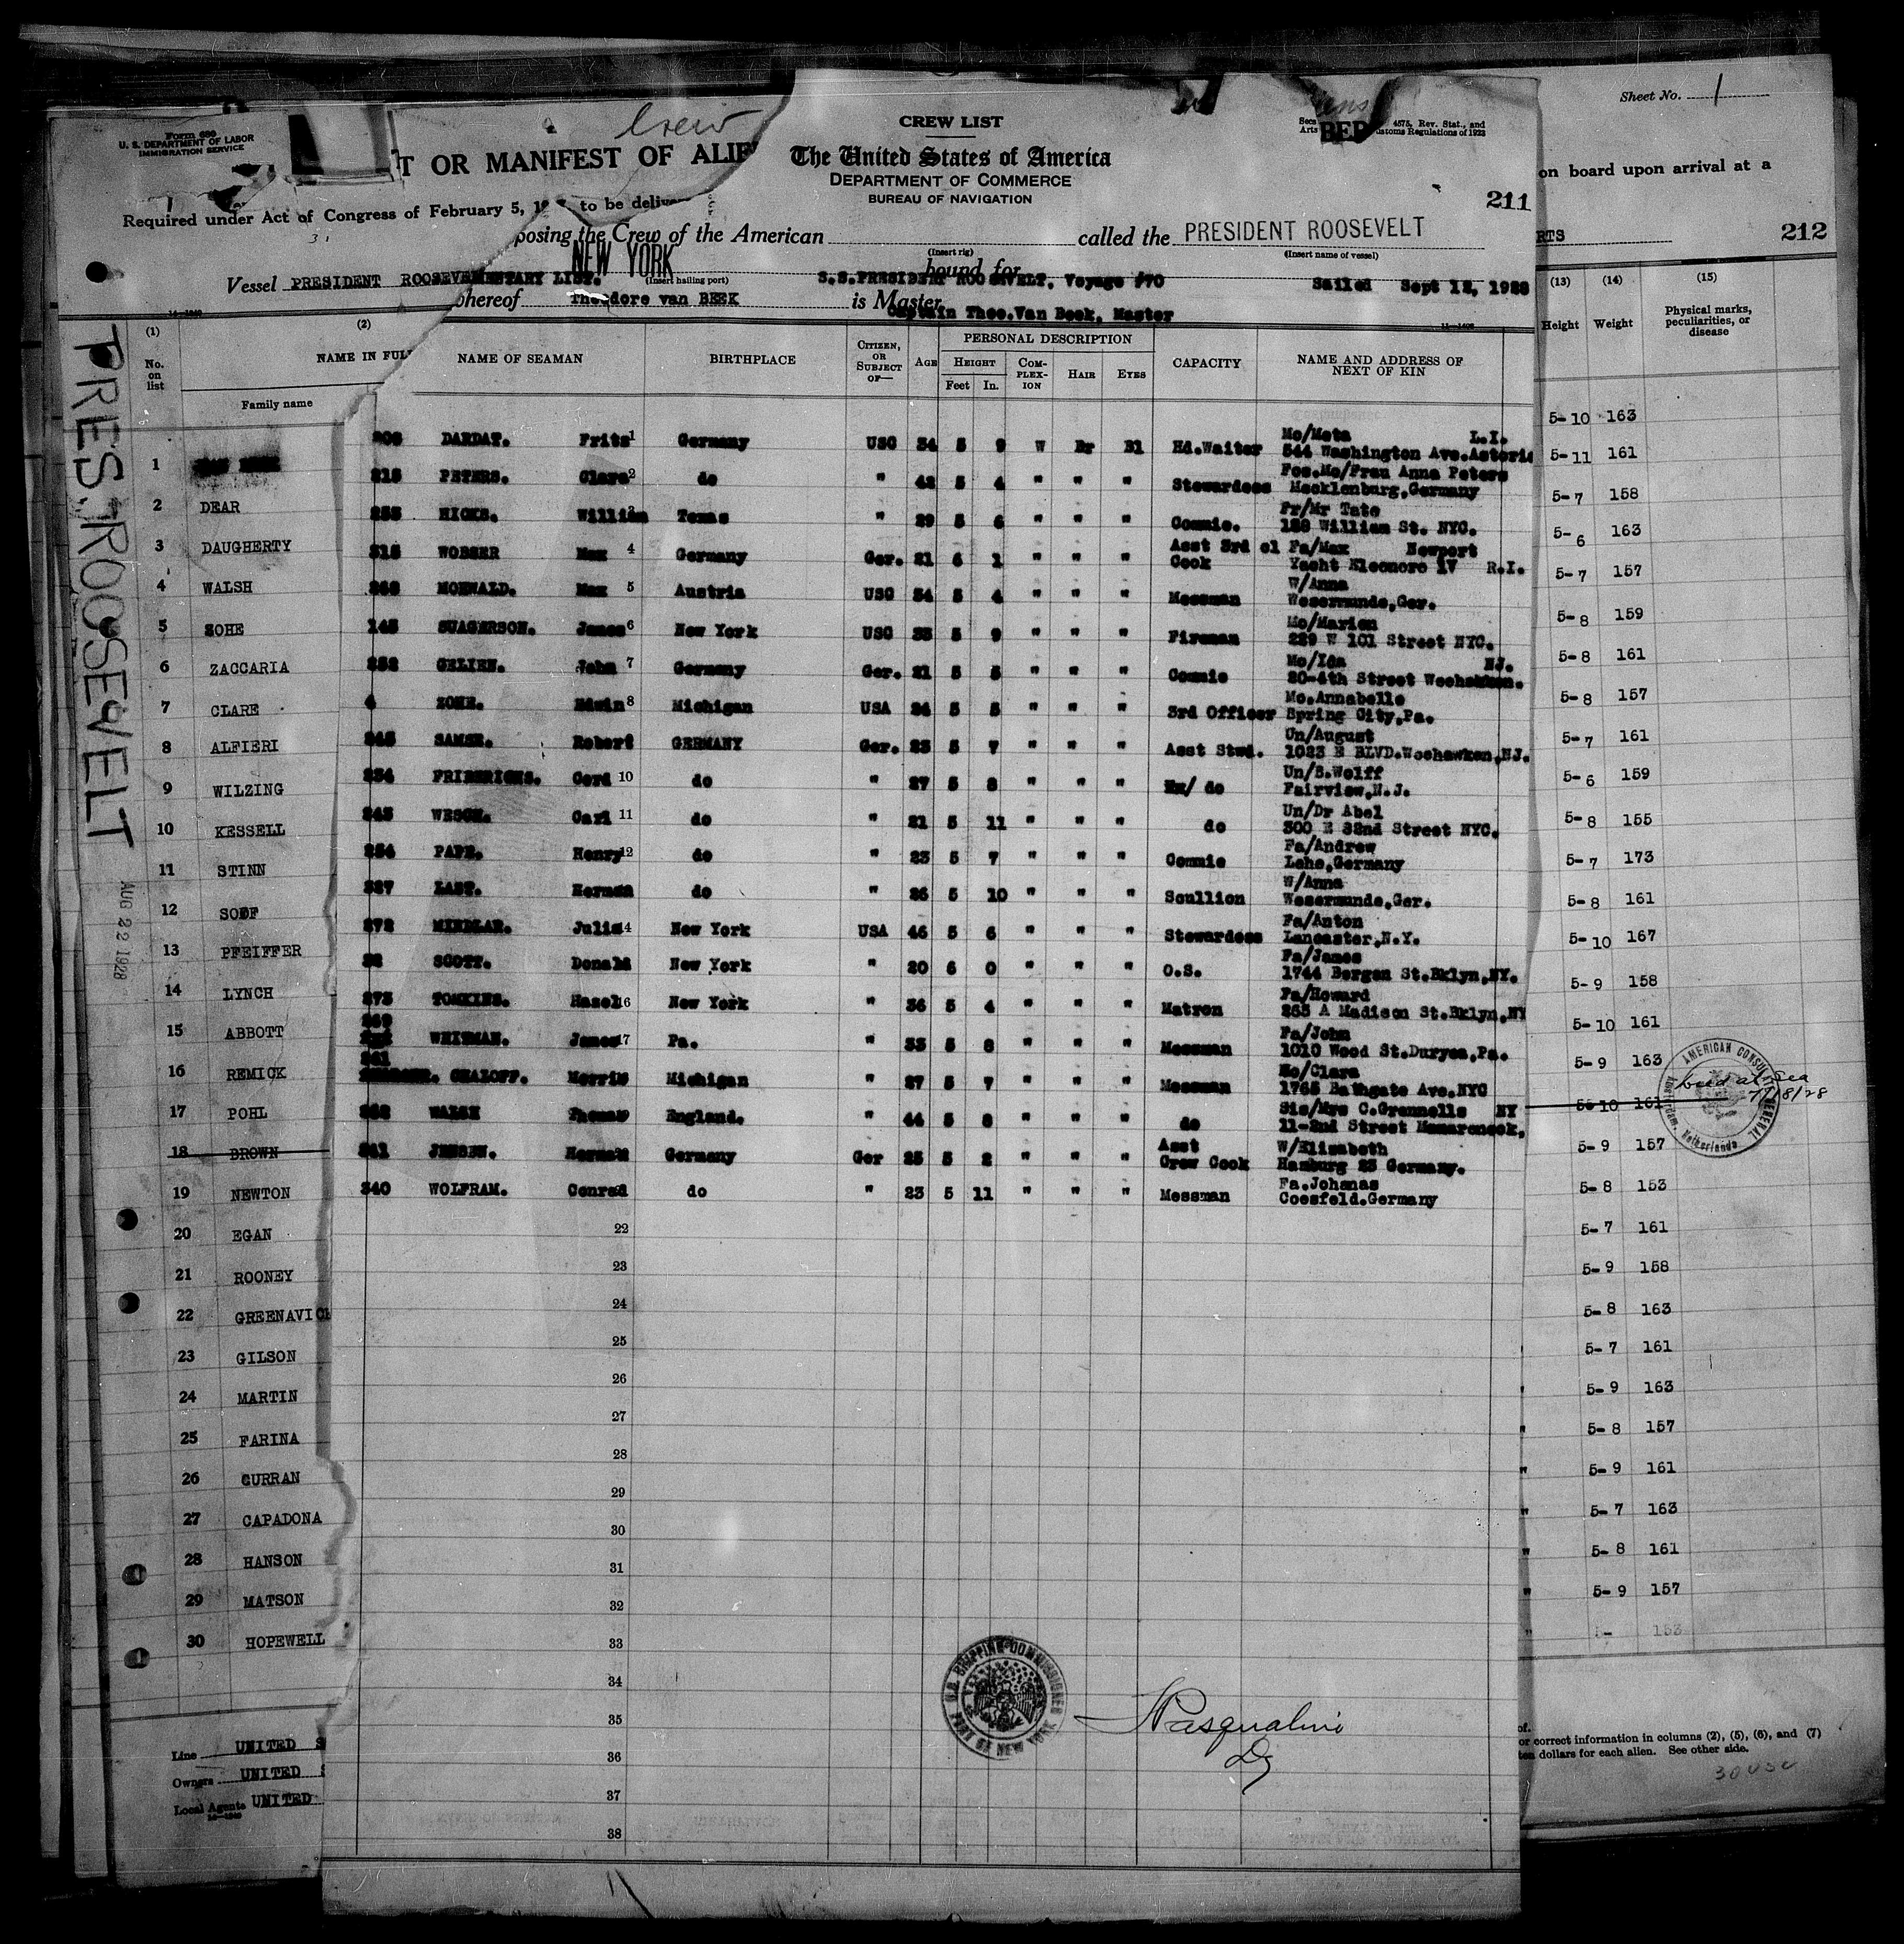 Sheet No. 1
Form 680
U. S. DEPARTMENT OF LABOR
IMMIGRATION SERVICE
Crew
T OR MANIFEST OF ALIE
Required under Act of Congress of February 5, to be deliver
on board upon arrival at a
RTS
212
Vessel PRESIDENT ROOSEVE
CREW LIST
4575, Rev. Stat., and
Customs Regulations of 1923
The United States of America
DEPARTMENT OF COMMERCE
BUREAU OF NAVIGATION
211
posing the Crew of the American
called the PRESIDENT ROOSEVELT
(Insert rig)
(Insert name of vessel)
NEW YORK
(Insert hailing port)
bound for
MENTARY LIST.
S.S.PRESIDENT ROOSEVELT, Voyage #70
Sailed Sept 12, 1928
whereof Theodore van BEEK is Master
Captain Theo.Van Beek, Master
PRES. ROOSEVELT
AUG 22 1928
(1)
No. on list
(2)
NAME IN FULL
Family name
NAME OF SEAMAN
BIRTHPLACE
CITIZEN, OR SUBJECT OF—
AGE
PERSONAL DESCRIPTION
HEIGHT
Feet In.
COMPLEXION
HAIR
EYES
CAPACITY
NAME AND ADDRESS OF NEXT OF KIN
(13) Height
(14) Weight
(15) Physical marks, peculiarities, or disease
DARDAT. Fritz 1 Germany USC 34 5 9 W Br Bl Hd.Waiter Mo/Meta L.I.
544 Washington Ave.Astoria
215 PETERS. Clara 2 do " 42 5 4 " " " Stewardess Fos.Mo/Frau Anna Peters
Mecklenburg,Germany
255 HICKS. William Texas " 29 5 6 " " " Commie. Fr/Mr Tate
188 William St. NYC.
315 WOBSER Max 4 Germany Ger. 21 6 1 " " " Asst 3rd cl Cook Fa/Max Newport
Yacht Eleonore IV R.I.
MOEWALD. Max 5 Austria USC 54 5 4 " " " Messman W/Anna
Wesermunde,Ger.
145 SUAGERSON. James 6 New York USC 33 5 9 " " " Fireman Mo/Marion
229 W 101 Street NYC.
GELIEN. John 7 Germany Ger. 21 5 5 " " " Commie Mo/Ida NJ.
20-4th Street Weehawken.
4 ZOHE. Edwin 8 Michigan USA 24 5 5 " " " 3rd Officer Mo.Annabelle
Spring City,Pa.
SAMSE. Robert GERMANY Ger. 23 5 7 " " " Asst Stwd. Un/August
1023 E BLVD.Weehawken,NJ.
234 FRIDERICHS. Gerd 10 do " 27 5 8 " " " Ex/ do Un/B.Wolff
Fairview,N.J.
243 WESCH. Carl 11 do " 21 5 11 " " " do Un/Dr Abel
300 E 32nd Street NYC.
254 PAPE. Henry 12 do " 23 5 7 " " " Commie Fa/Andrew
Lehe,Germany
LAST. Herman do " 26 5 10 " " " Scullion W/Anna
Wesermunde,Ger.
272 MINDLAR. Julia 14 New York USA 46 5 6 " " " Stewardess Fa/Anton
Lancaster,N.Y.
SCOTT. Donald New York " 20 6 0 " " " O.S. Fa/James
1744 Bergen St.Bklyn,NY.
273 TOMKINS. Hazel 16 New York " 36 5 4 " " " Matron Fa/Howard
265 A Madison St.Bklyn,NY
WHITMAN. James 17 Pa. " 33 5 8 " " " Messman Fa/John
1010 Wood St.Duryea,Pa.
CHALOFF. Morris Michigan " 27 5 7 " " " Messman Mo/Clara
1765 Bathgate Ave.NYC
WALSH Thomas England. " 44 5 8 " " " do Sis/Mrs C.Grennells NY
11-2nd Street Mamaroneck.
341 JENSEN. Herman Germany Ger 25 5 2 " " " Asst Crew Cook W/Elizabeth
Hamburg 23 Germany.
340 WOLFRAM. Conrad do " 23 5 11 " " " Messman Fa.Johanas
Coesfeld.Germany
22
23
24
25
26
27
28
29
30
31
32
33
34
35
36
37
38
1
2 DEAR
3 DAUGHERTY
4 WALSH
5 SOHE
6 ZACCARIA
7 CLARE
8 ALFIERI
9 WILZING
10 KESSELL
11 STINN
12
13 PFEIFFER
14 LYNCH
15 ABBOTT
16 REMICK
17 POHL
18 BROWN
19 NEWTON
20 EGAN
21 ROONEY
22 GREENAVICH
23 GILSON
24 MARTIN
25 FARINA
26 CURRAN
27 CAPADONA
28 HANSON
29 MATSON
30 HOPEWELL
5-10 163
5-11 161
5-7 158
5-6 163
5-7 157
5-8 159
5-8 161
5-8 157
5-7 161
5-6 159
5-8 155
5-7 173
5-8 161
5-10 167
5-9 158
5-10 161
5-9 163
5-10 161
5-9 157
5-8 153
5-7 161
5-9 158
5-8 163
5-7 161
5-9 163
5-8 157
5-9 161
5-7 163
5-8 161
5-9 157
5- 153
AMERICAN CONSULATE GENERAL
Amsterdam, Netherlands
died at Sea
7/18/28
U.S. SHIPPING COMMISSIONER
PORT OF NEW YORK
Pasqualini
Dy
Line UNITED S
Owners UNITED
Local Agents UNITED
of.
or correct information in columns (2), (5), (6), and (7)
ten dollars for each alien. See other side.
30 USC